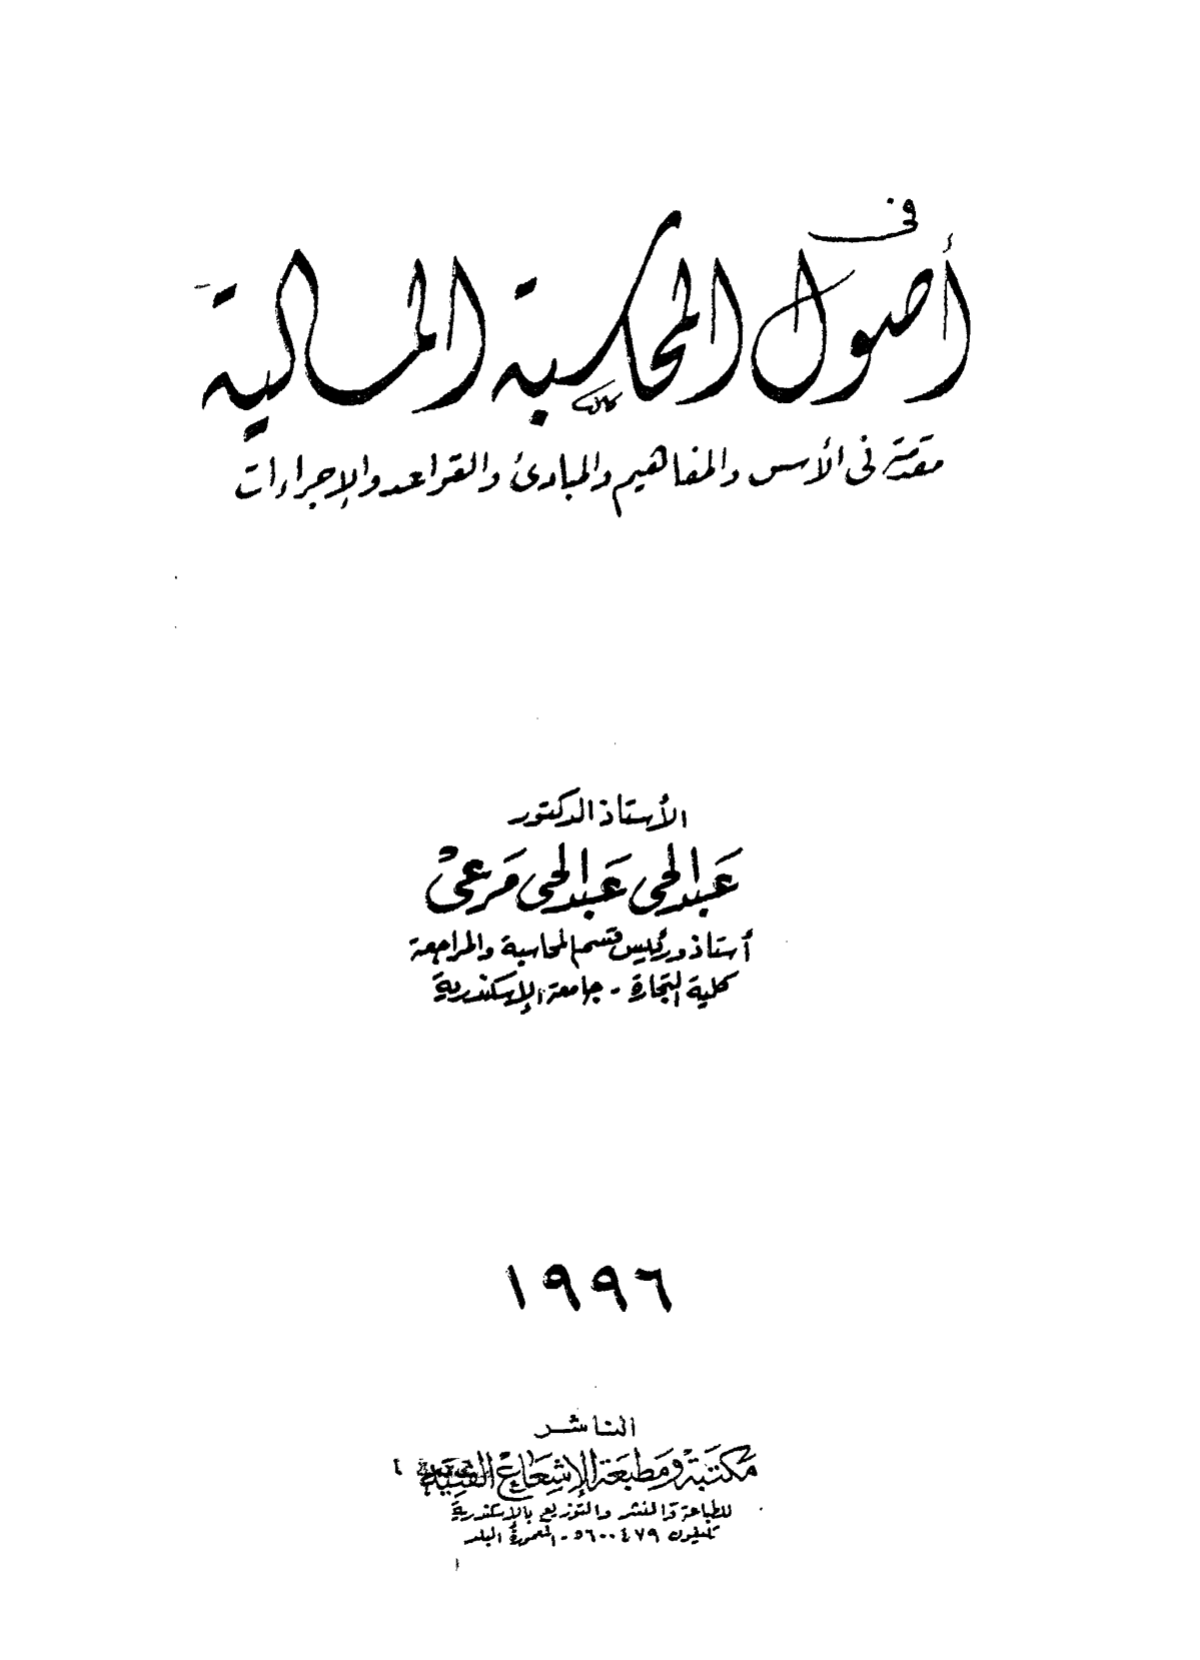 فى
أصول المحاسبة المالية
مقدمة فى الأسس والمفاهيم والمبادئ والقواعد والإجراءات
الأستاذ الدكتور
عبدالحى عبدالحى مرعى
أستاذ ورئيس قسم المحاسبة والمراجعة
كلية التجارة - جامعة الإسكندرية
١٩٩٦
الناشر
مكتبة ومطبعة الإشعاع الفنية
للطباعة والنشر والتوزيع بالإسكندرية
تليفون ٥٦٠٠٤٧٩ - المعمورة البلد